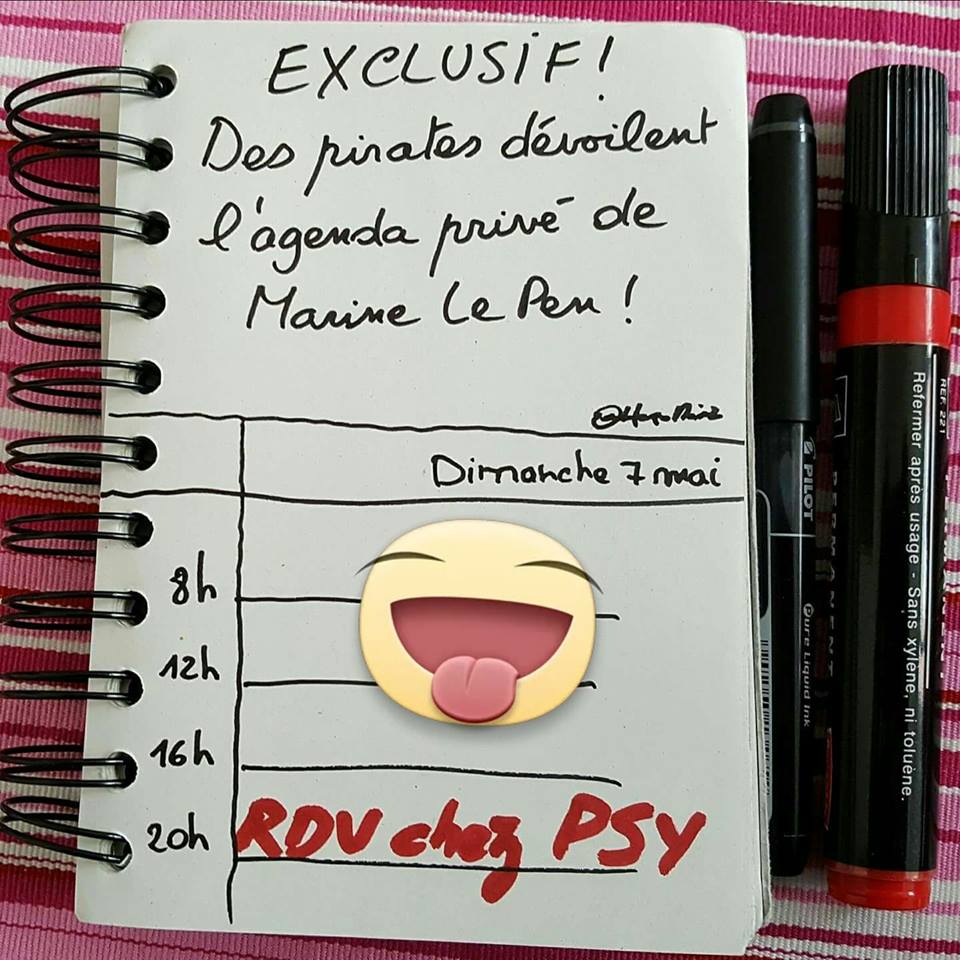 EXCLUSIF!
Des pirates dévoilent
l'agenda privé de
Marine Le Pen !
Dimanche 7 mai
8h
12h
16h
20h RDV chez PSY
PILOT
PERMANENT
Pure Liquid Ink
REF. 221
Refermer après usage - Sans xylène, ni toluène.